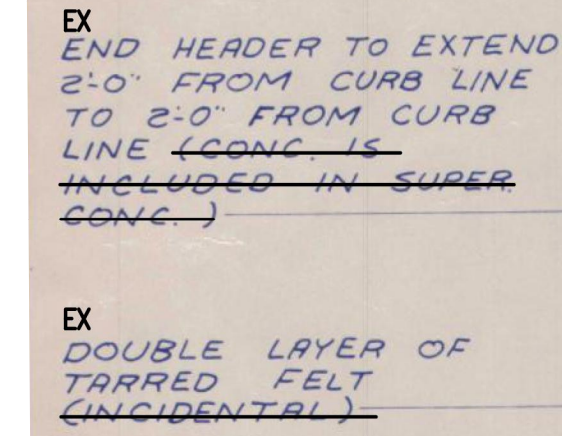 EX
END HEADER TO EXTEND
2'-0" FROM CURB LINE
TO 2'-0" FROM CURB
LINE (CONC. IS
INCLUDED IN SUPER.
CONC. )
EX
DOUBLE LAYER OF
TARRED FELT
(INCIDENTAL)